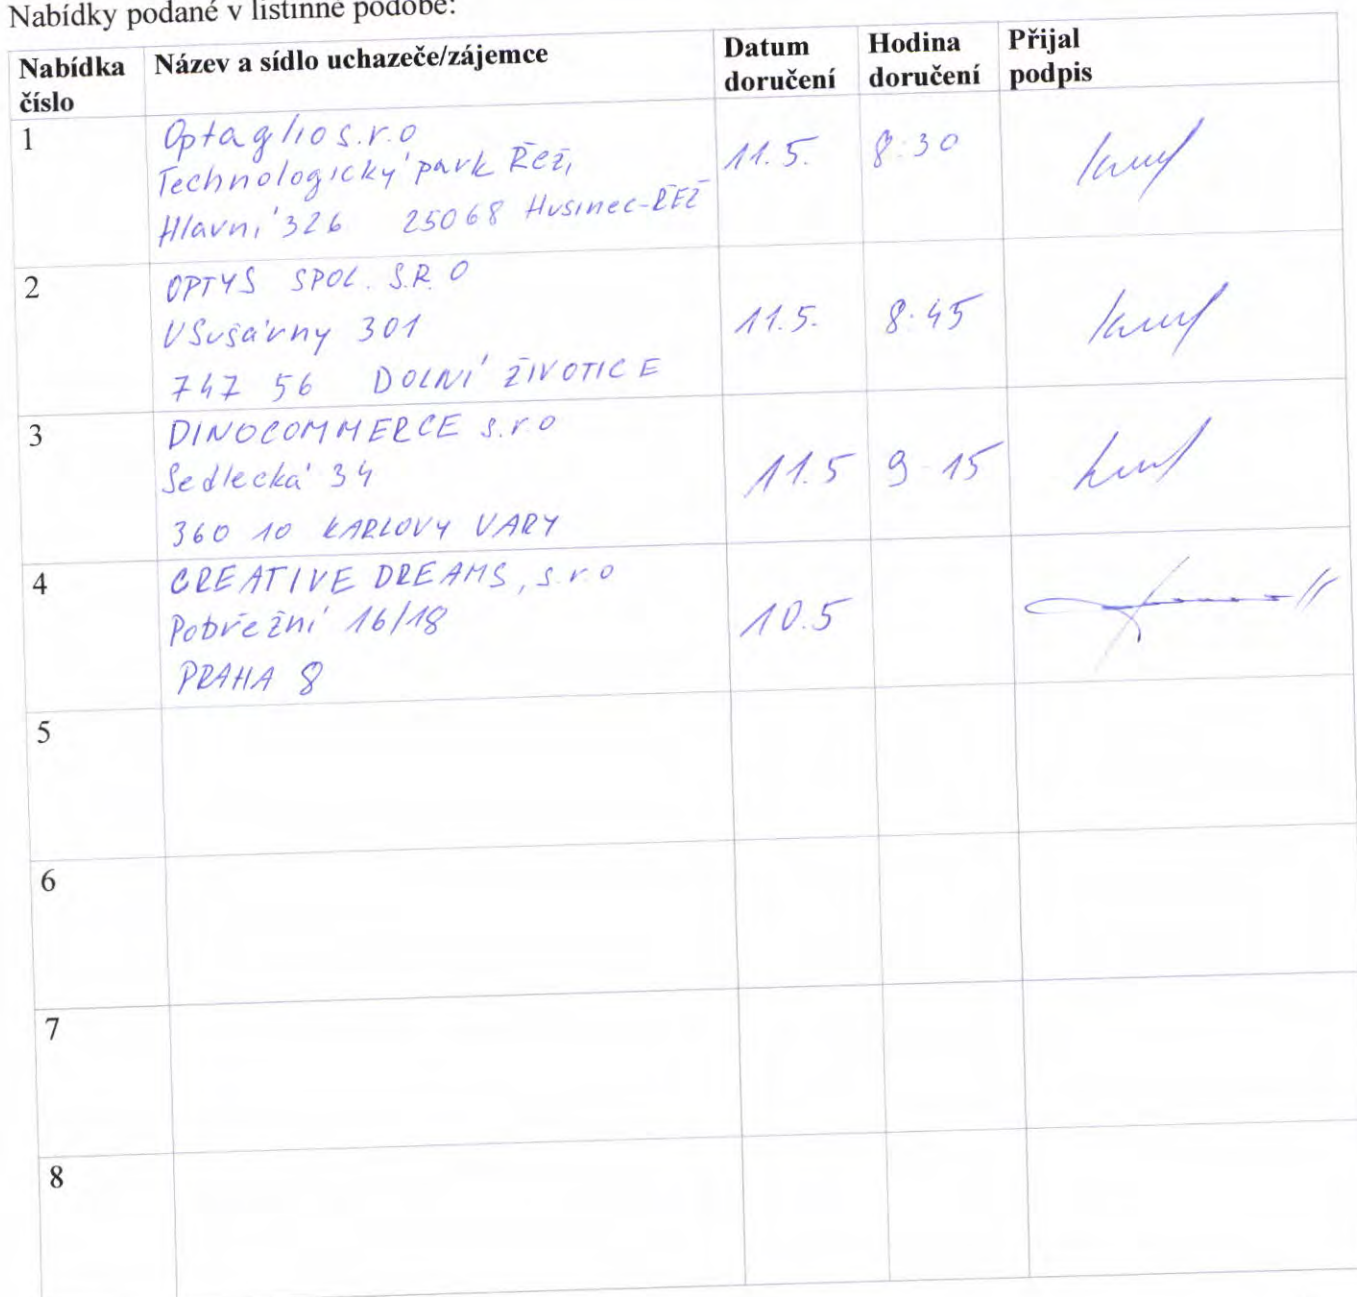 Nabídky podané v listinné podobě:
Nabídka číslo | Název a sídlo uchazeče/zájemce | Datum doručení | Hodina doručení | Přijal podpis
1
Optaglio s.r.o
Technologický park Řež,
Hlavní 326 25068 Husinec-ŘEŽ
11.5. 8:30
2
OPTYS SPOL. S.R.O
U Sušárny 301
747 56 DOLNÍ ŽIVOTICE
11.5. 8:45
3
DINOCOMMERCE s.r.o
Sedlecká 34
360 10 KARLOVY VARY
11.5 9-15
4
CREATIVE DREAMS, s.r.o
Pobřežní 16/18
PRAHA 8
10.5
5
6
7
8